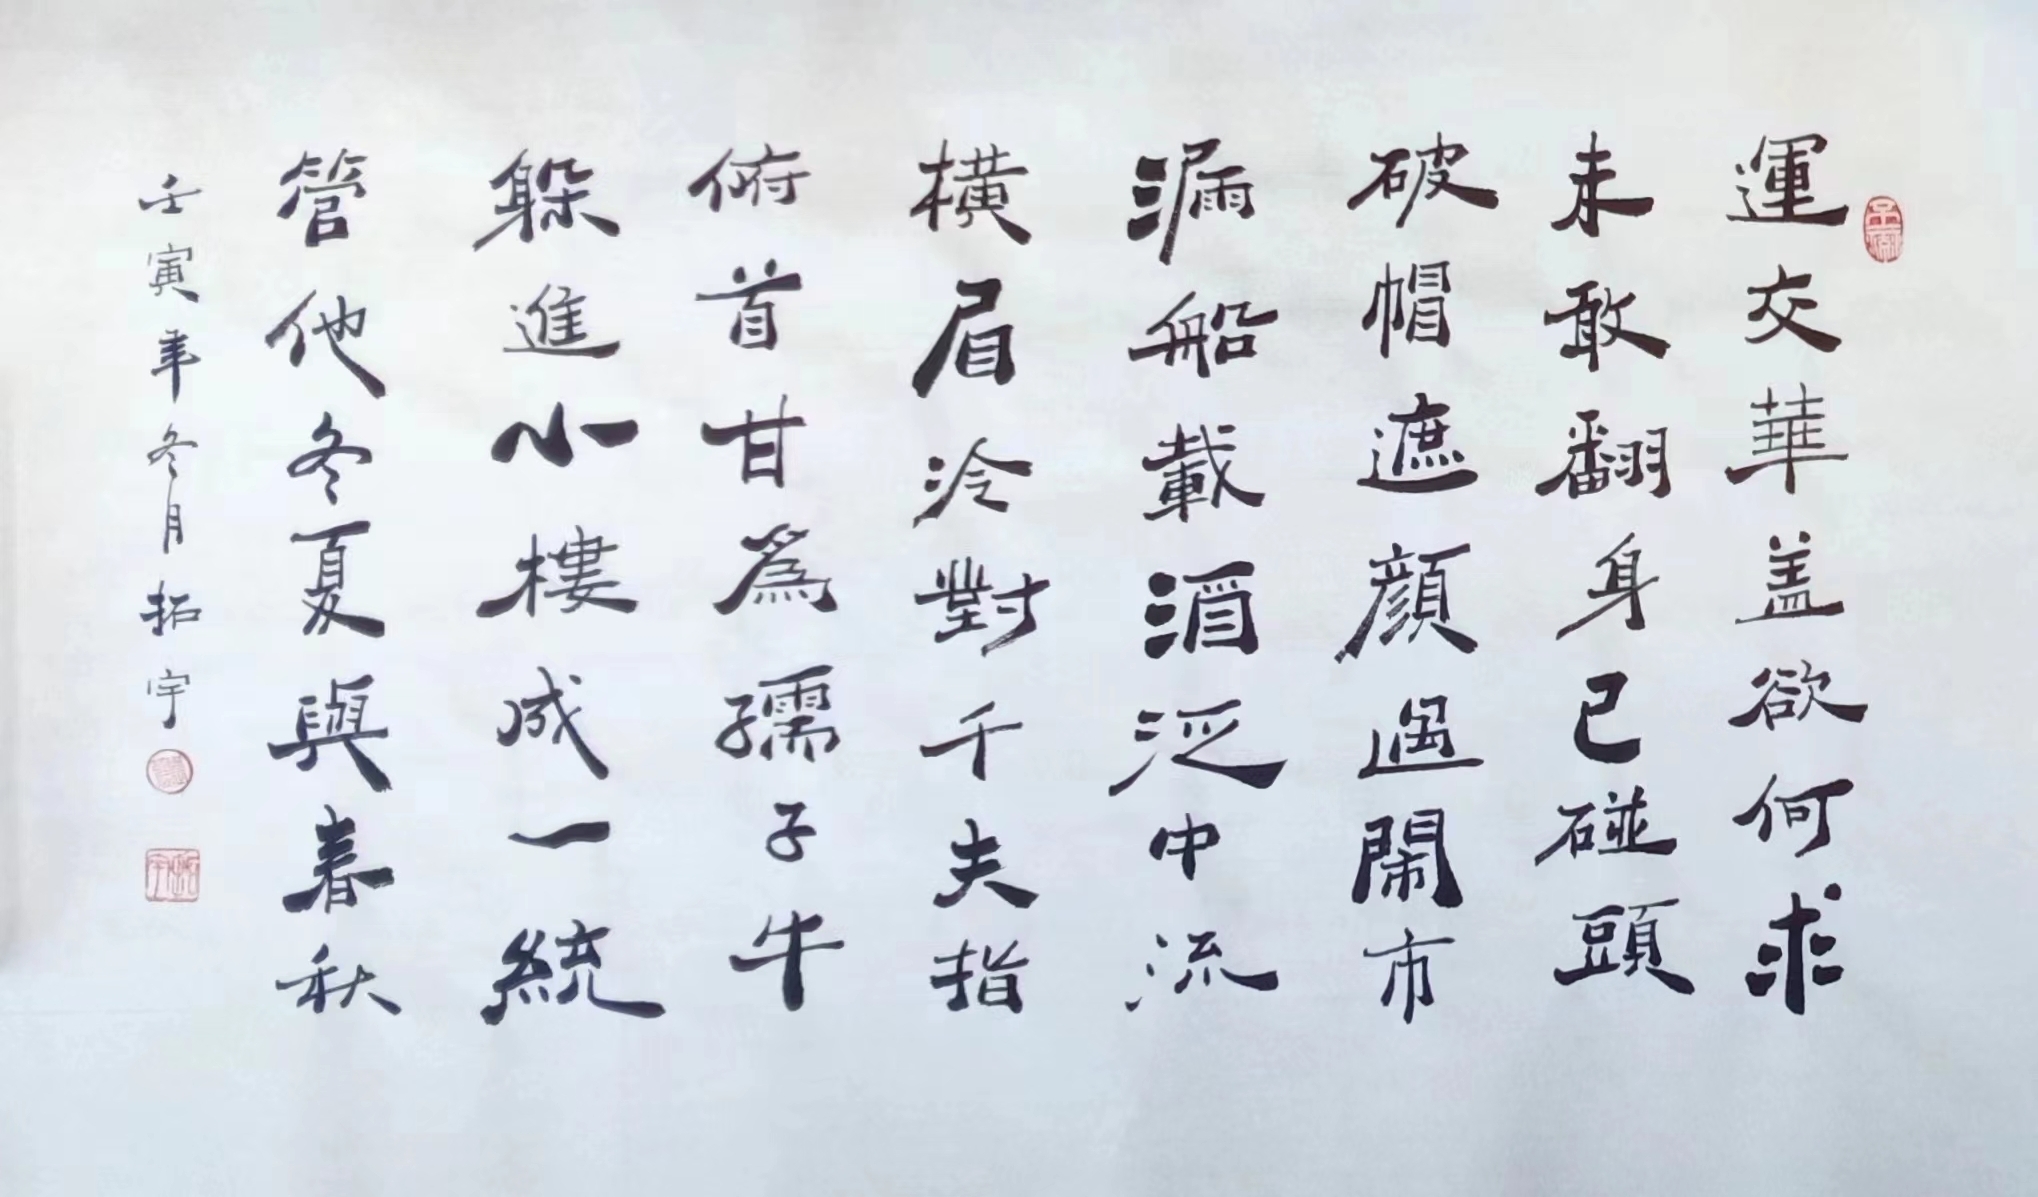 運交華盖欲何求
未敢翻身已碰頭
破帽遮顔過鬧市
漏船載酒泛中流
横眉冷對千夫指
俯首甘爲孺子牛
躲進小樓成一統
管他冬夏與春秋
壬寅年冬月拓宇